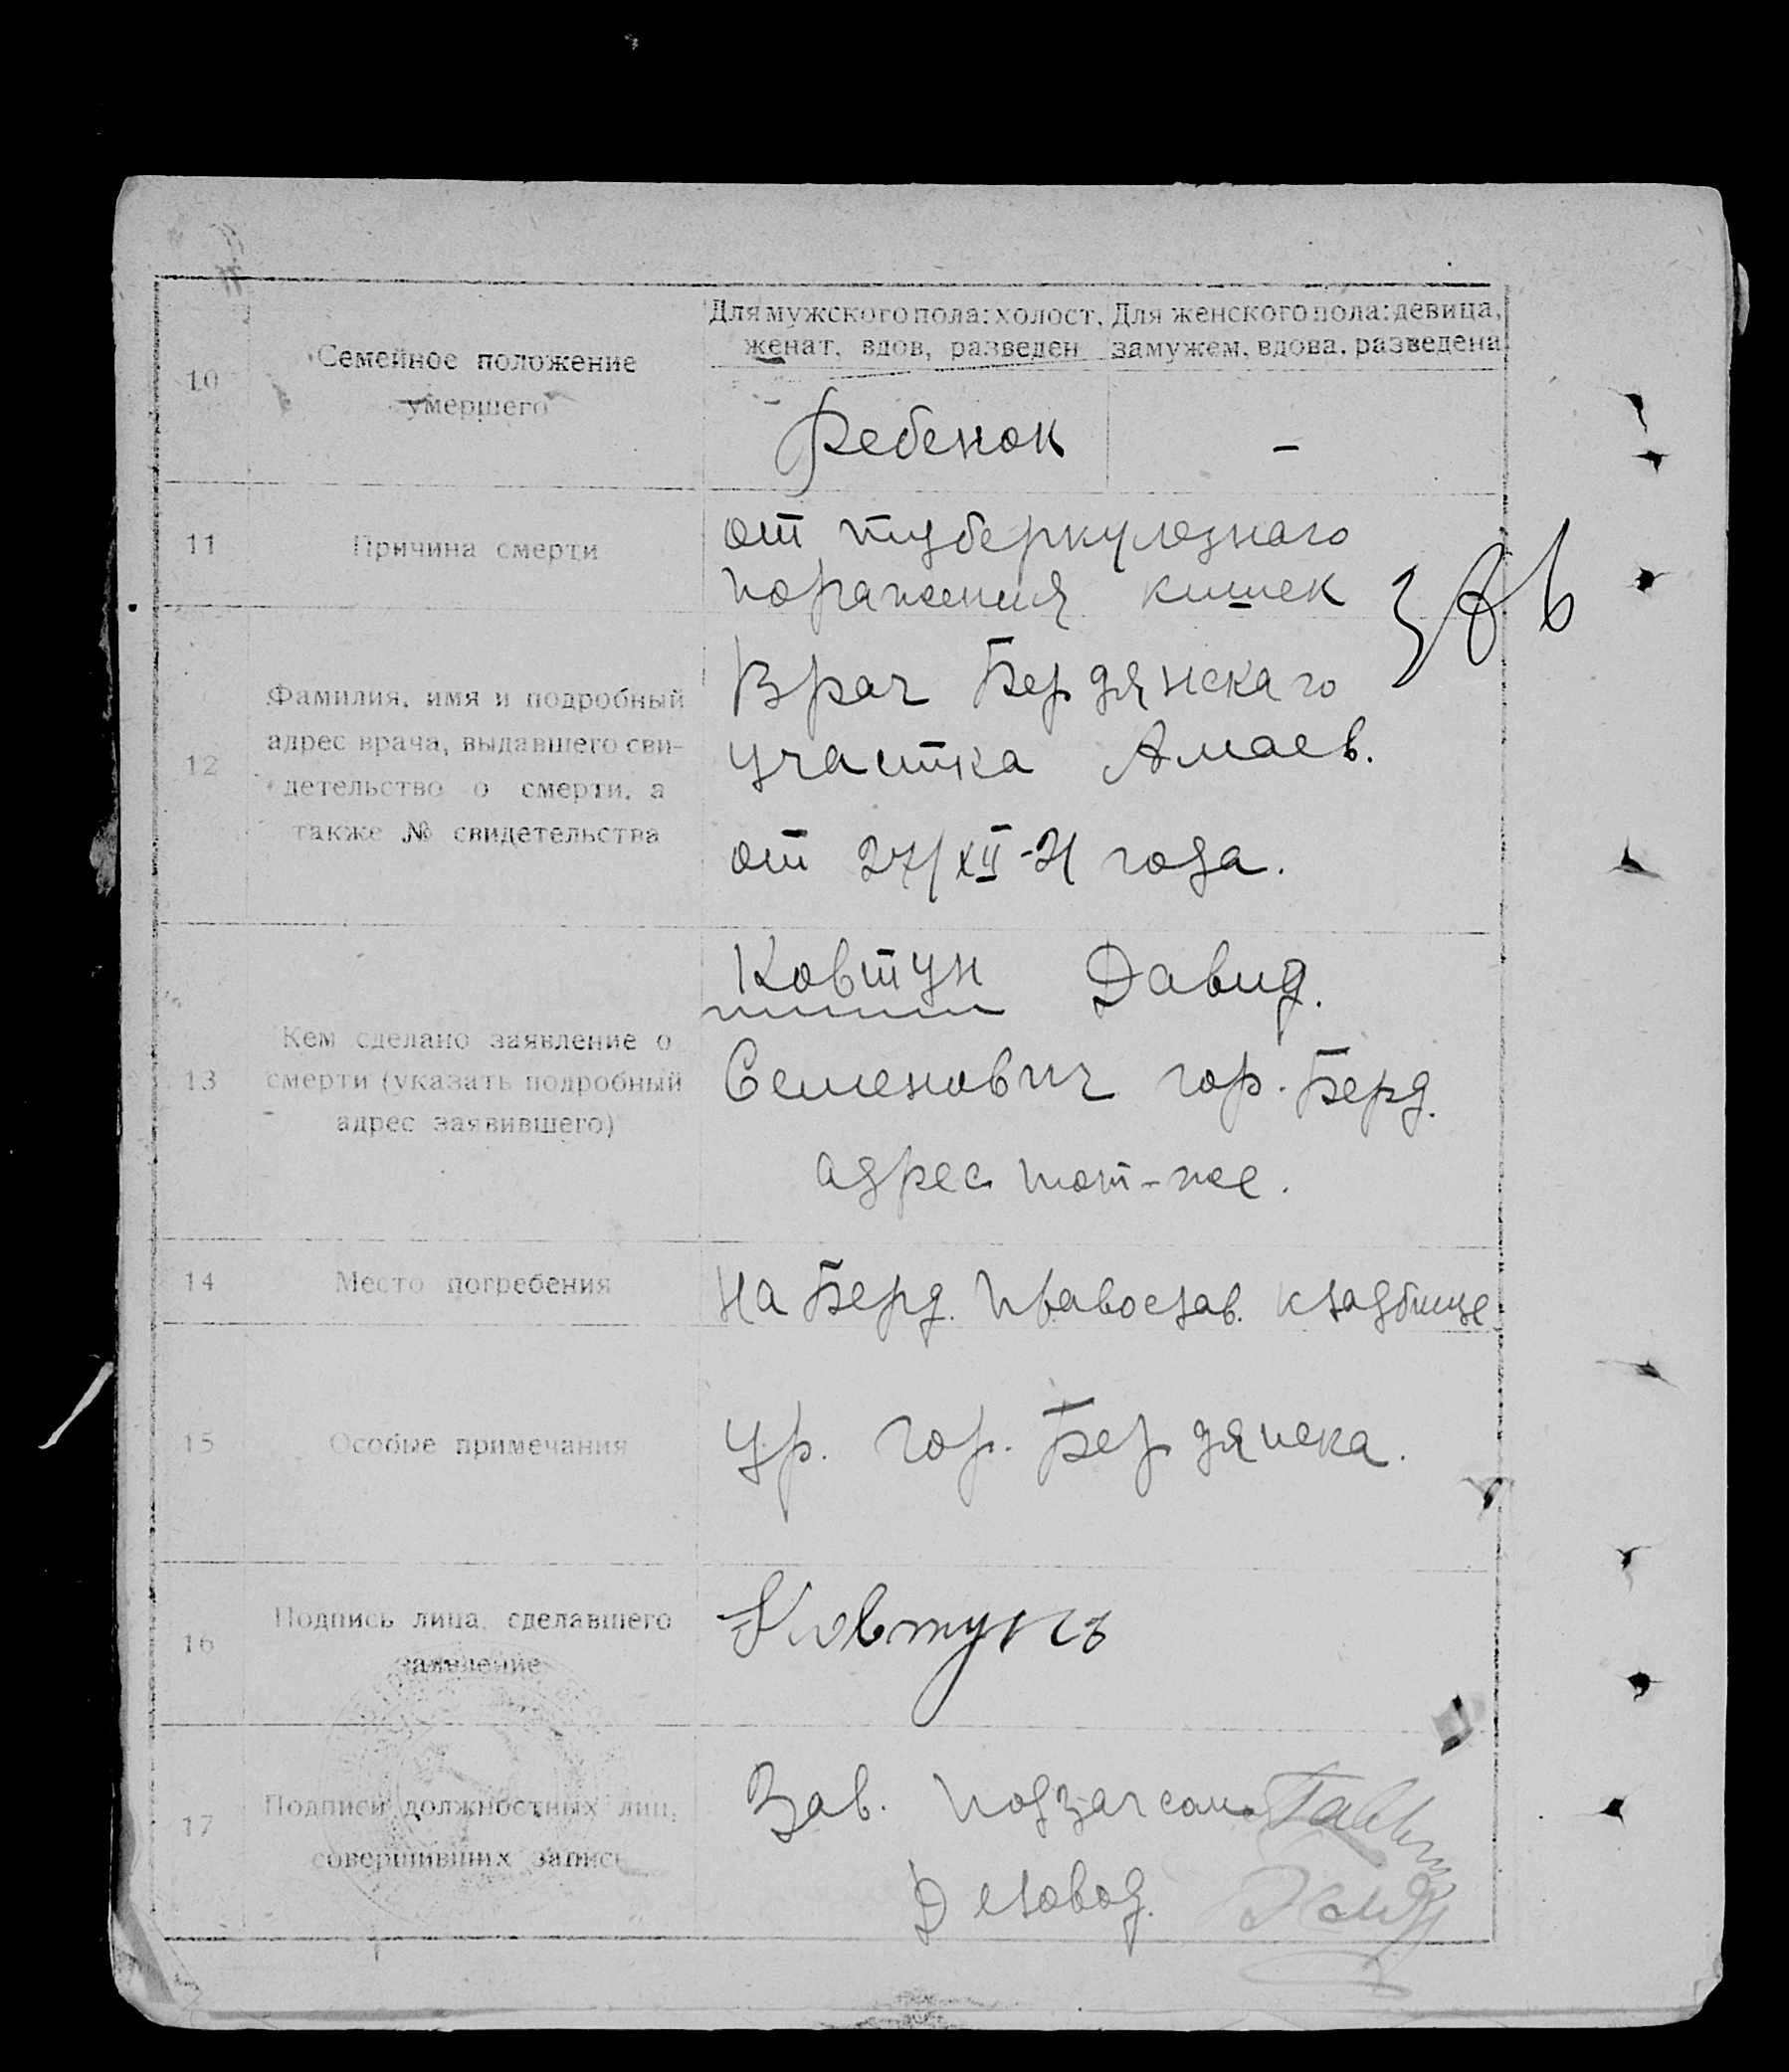 Для мужского пола: холост, женат, вдов, разведен
Для женского пола: девица, замужем, вдова, разведена
10
Семейное положение
умершего
Ребенок
-
11
Причина смерти
от туберкулезнаго
поражения кишек
12
Фамилия, имя и подробный
адрес врача, выдавшего сви-
детельство о смерти, а
также № свидетельства
Врач Бердянскаго
участка Амаев.
от 27/XII-21 года.
13
Кем сделано заявление о
смерти (указать подробный
адрес заявившего)
Ковтун Давид.
Семенович гор. Берд.
адрес тот-же.
14
Место погребения
на Берд. Православ. кладбище
15
Особые примечания
Ур. гор. Бердянска.
16
Подпись лица, сделавшего
заявление
Ковтунъ
17
Подписи должностных лиц,
совершивших запись
Зав. Подзагсом
Деловод.